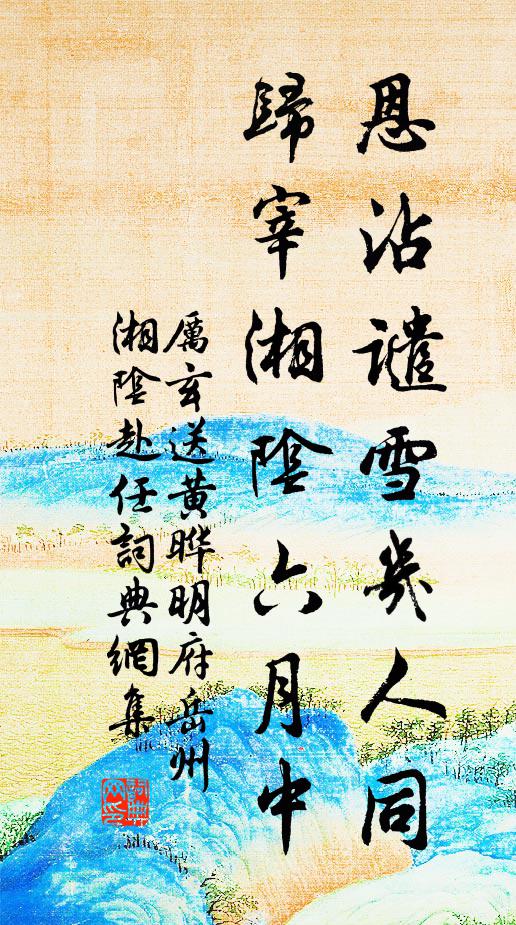 恩沾譴雪幾人同
歸宰湘陰六月中
厲玄送黃晔明府岳州
湘陰赴任詞典網集